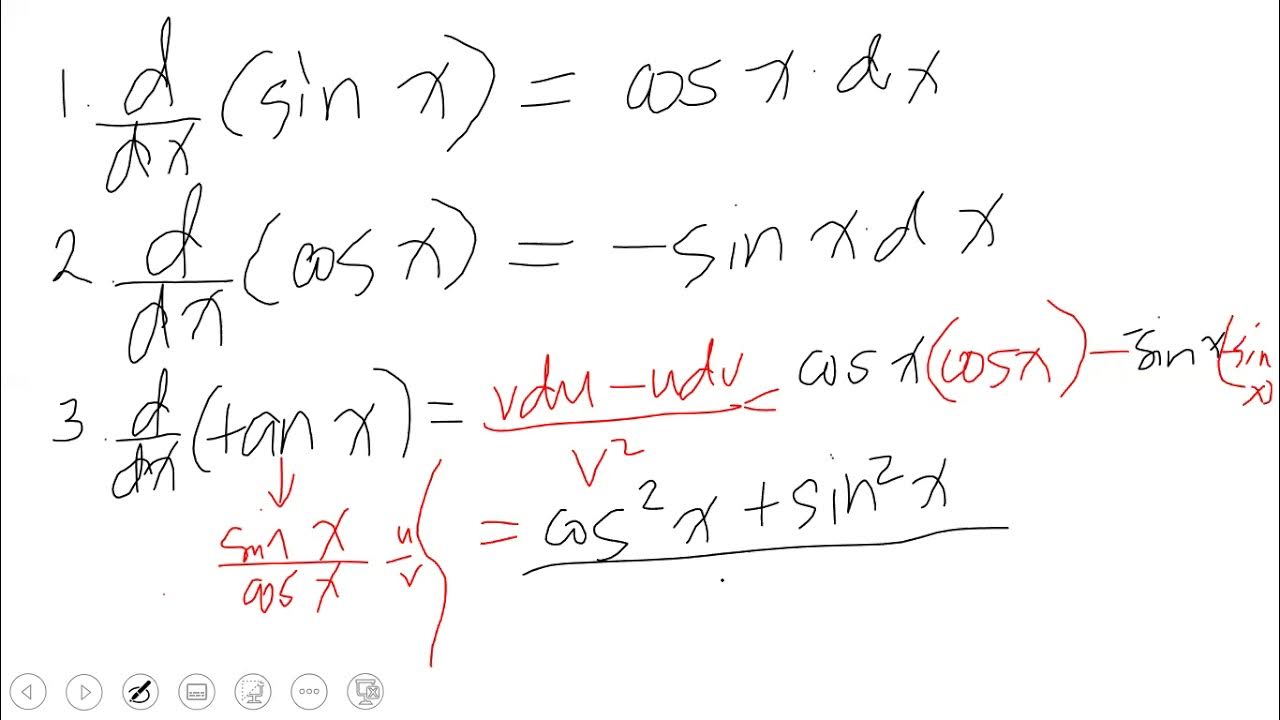 1. d/dx (sin x) = cos x · dx
2. d/dx (cos x) = -sin x · dx
3. d/dx (tan x) = vdu - udv / v² = cos x (cos x) - -sin x (sin x)
↓
sin x / cos x u/v { = cos² x + sin² x